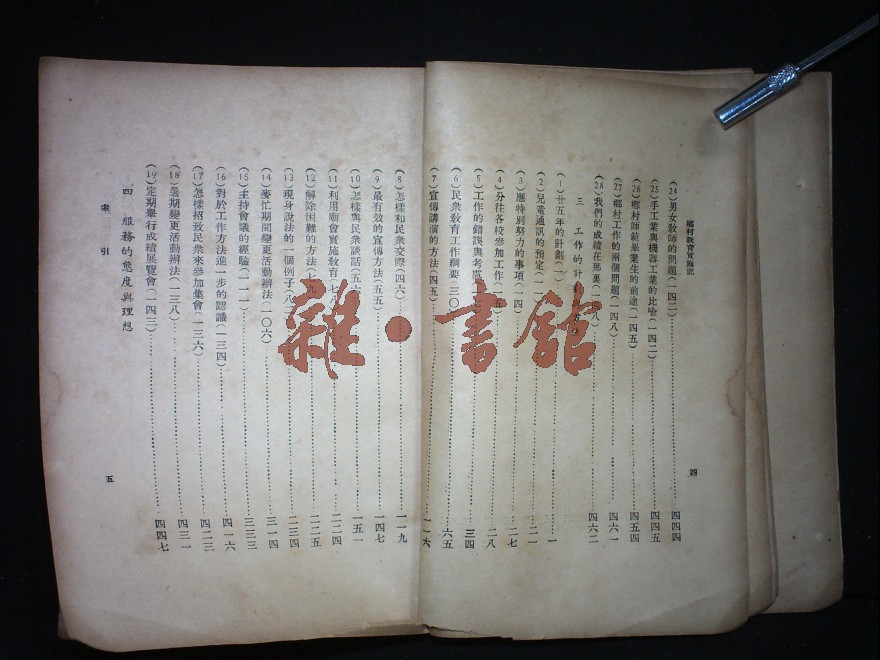 鄉村敎育實施記
(24)男女敎師的問題(一四二)……四四四
(25)手工業與機器工業的比喩(一四二)……四四五
(26)鄉村師範畢業生的前途(一四五)……四五四
(27)鄉村工作的兩個問題(一四八)……四六一
(28)我們的成績在那裏……四六二
三 工作的計
(1)廿五年的計劃(一)……一
(2)兒童通訊的預定……二一
(3)應特別努力的事項(一四)……二七
(4)分往各校參加工作(一五)……二八
(5)工作的錯誤與考慮……三四
(6)民衆敎育工作綱要(三〇)……六五
(7)宣傳講演的方法(四五)……一一六
四
(8)怎樣和民衆交際(四六)……一一九
(9)最有效的宣傳方法(五五)……一四七
(10)怎樣與民衆談話……一五一
(11)利用廟會實施敎育……二二四
(12)解除困難的方法……二二五
(13)現身說法的一個例子……二三四
(14)農忙期間變更活動辦法(一〇六)……三一四
(15)主持會議的經驗(一一一)……三三三
(16)對於工作方法進一步的認識(一三四)……四一六
(17)怎樣招致民衆來參加集會(一三六)……四二三
(18)暑期變更活動辦法(一三八)……四三一
(19)定期舉行成績展覽會(一四三)……四四七
四 服務的態度與理想
索引
五
雜·書館